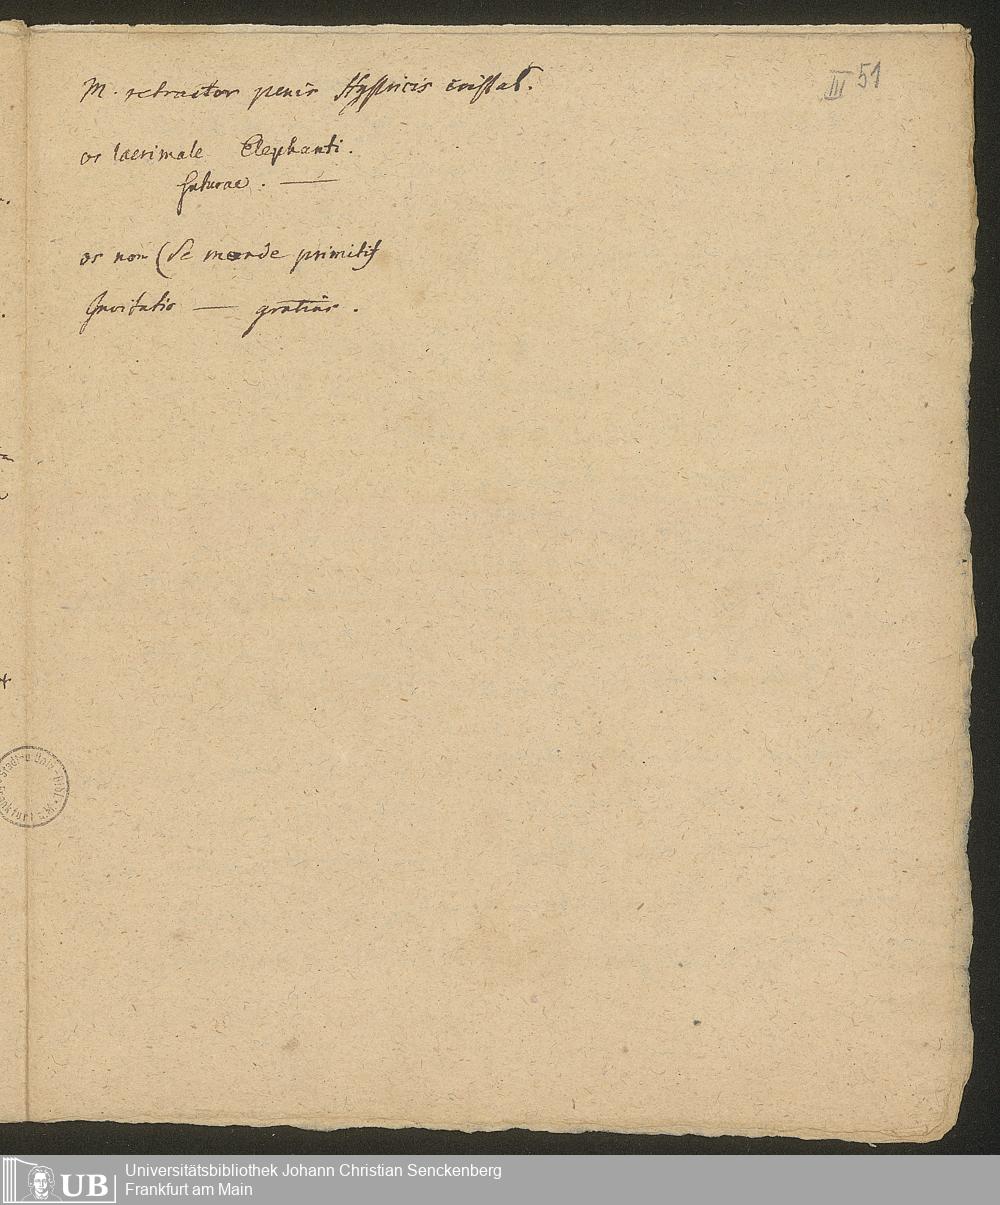 M. retractor penis Hystricis cristat.
III 51
os lacrimale Elephanti.
Suturae. —
os non (de monde primitif
Invitatio — gratias.
Stadt- u. Univ.-Bibl. Frankfurt
UB Universitätsbibliothek Johann Christian Senckenberg
Frankfurt am Main